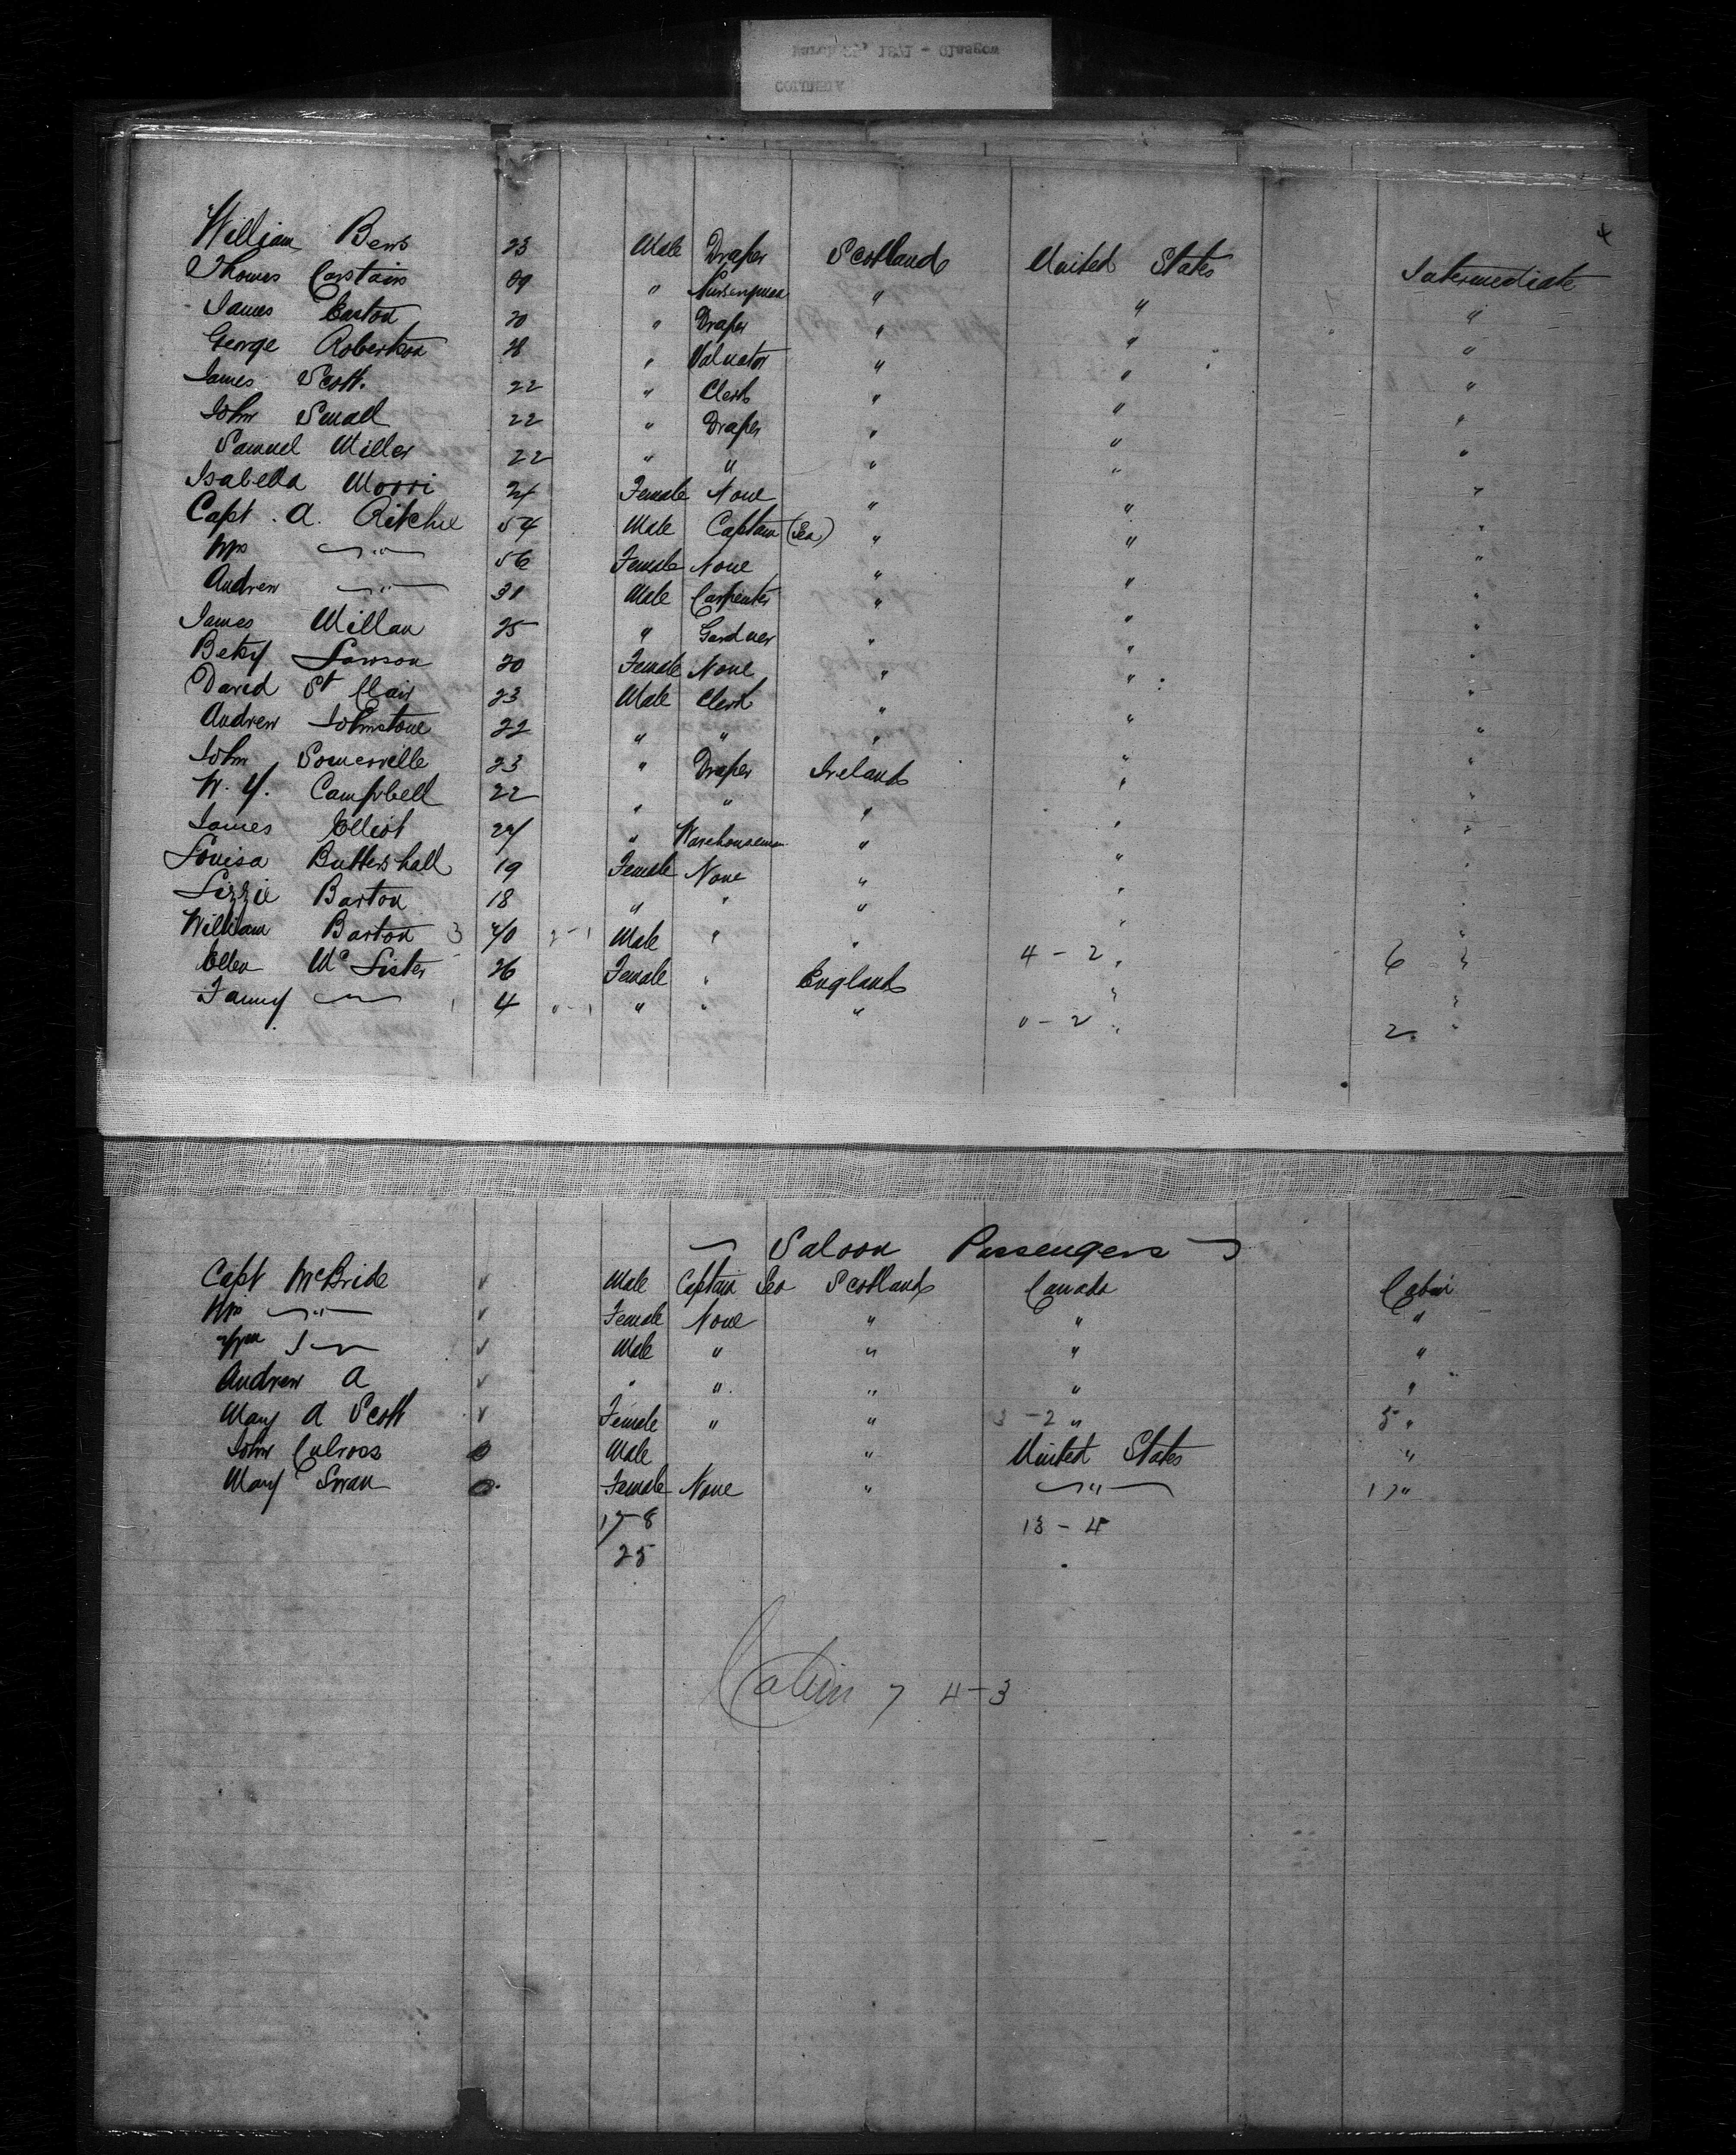 William Bews 23 Male Draper Scotland United States Intermediate
Thomas Carstairs 29 " Nurseryman " " "
James Easton 20 " Draper " " "
George Robertson 28 " Valuator " " "
James Scott. 22 " Clerk " " "
John Small 22 " Draper " " "
Samuel Miller 22 " " " " "
Isabella Morri 24 Female None " " "
Capt. A. Ritchie 54 Male Captain (Sea) " " "
Mrs " 56 Female None " " "
Andrew " 31 Male Carpenter " " "
James Millan 25 " Gardner " " "
Betsy Lawson 20 Female None " " "
David St Clair 23 Male Clerk " " "
Andrew Johnstone 22 " " " " "
John Somerville 23 " Draper Ireland " "
W. Y. Campbell 22 " " " " "
James Elliot 24 " Warehouseman " " "
Louisa Buttershall 19 Female None " " "
Lizzie Barton 18 " " " " "
William Barton 3 40 2-1 Male " " 4-2 " 6 "
Ellen McLister 26 Female " England " "
Fanny 1 4 0-1 " " " 0-2 " 2 "
Saloon Passengers
Capt McBride Male Captain Sea Scotland Canada Cabin
Mrs " Female None " " "
Wm J Male " " " "
Andrew A " " " " "
Mary A Scott Female " " 3-2 " 5 "
John Culross Male " United States "
Mary Swan Female None " " 17 "
17-8 13-4
25
Cabin 7 4-3